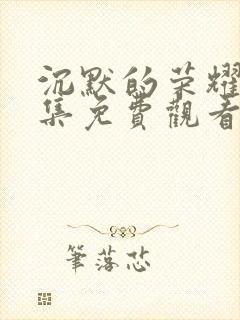 沉默的荣耀
集免費觀看
筆落芯